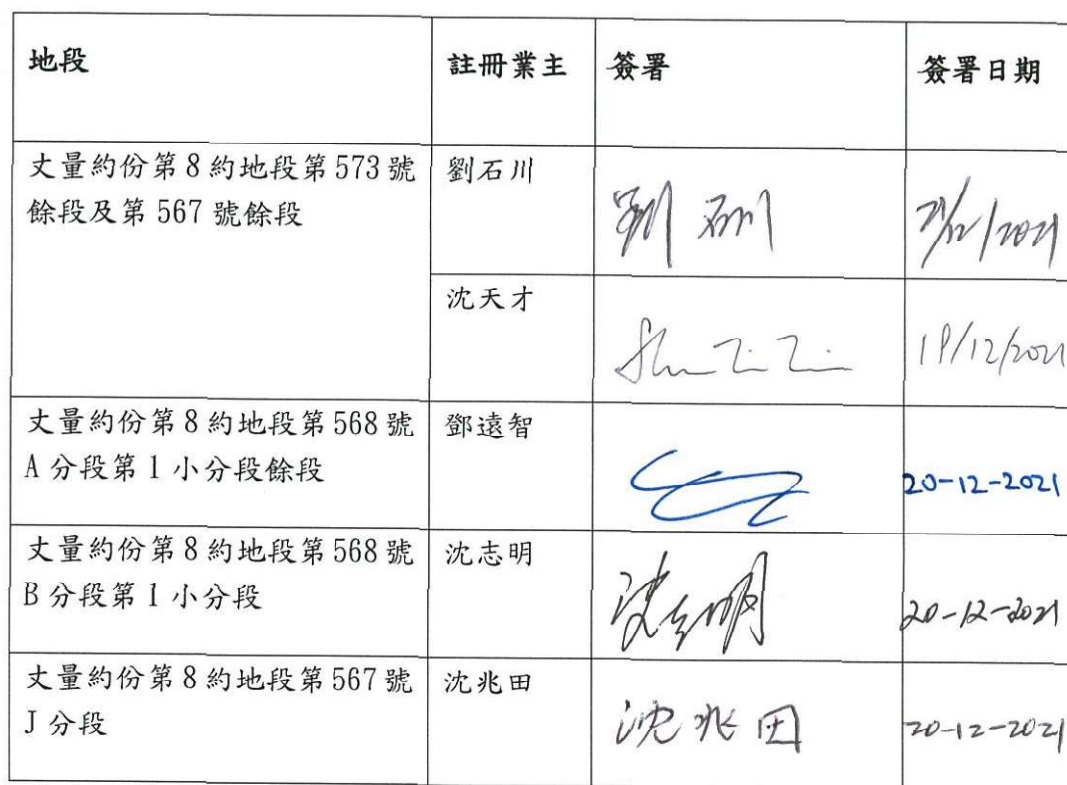 地段 註冊業主 簽署 簽署日期
丈量約份第8約地段第573號 劉石川
餘段及第567號餘段 劉石川 21/12/2021
沈天才 19/12/2021
丈量約份第8約地段第568號 鄧遠智
A分段第1小分段餘段 20-12-2021
丈量約份第8約地段第568號 沈志明
B分段第1小分段 沈志明 20-12-2021
丈量約份第8約地段第567號 沈兆田
J分段 沈兆田 20-12-2021